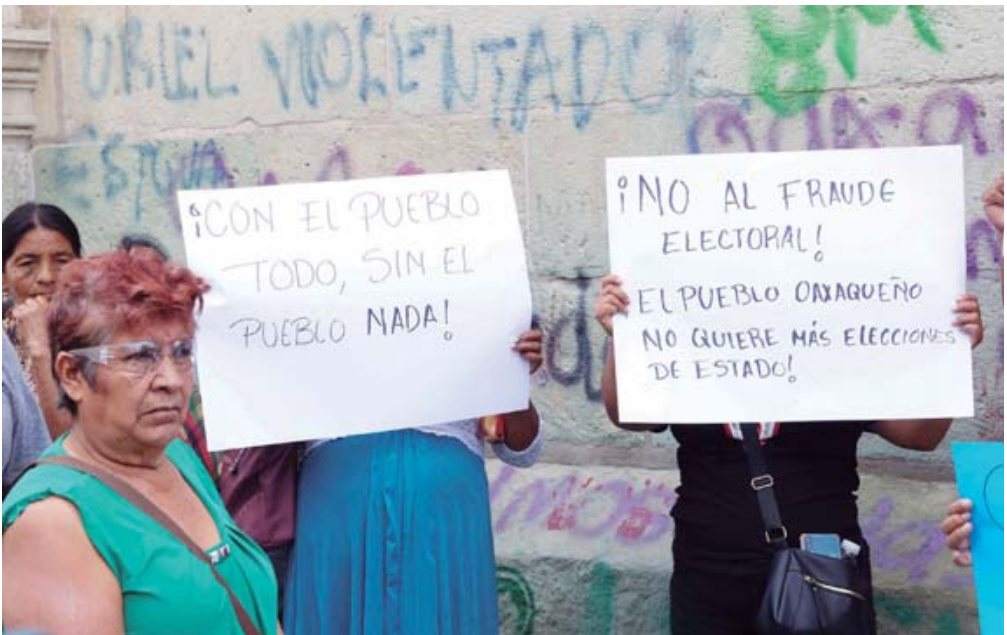 URIEL VIOLENTADOR
8M
¡CON EL PUEBLO
TODO, SIN EL
PUEBLO NADA!
¡NO AL FRAUDE
ELECTORAL!
EL PUEBLO OAXAQUEÑO
NO QUIERE MÁS ELECCIONES
DE ESTADO!